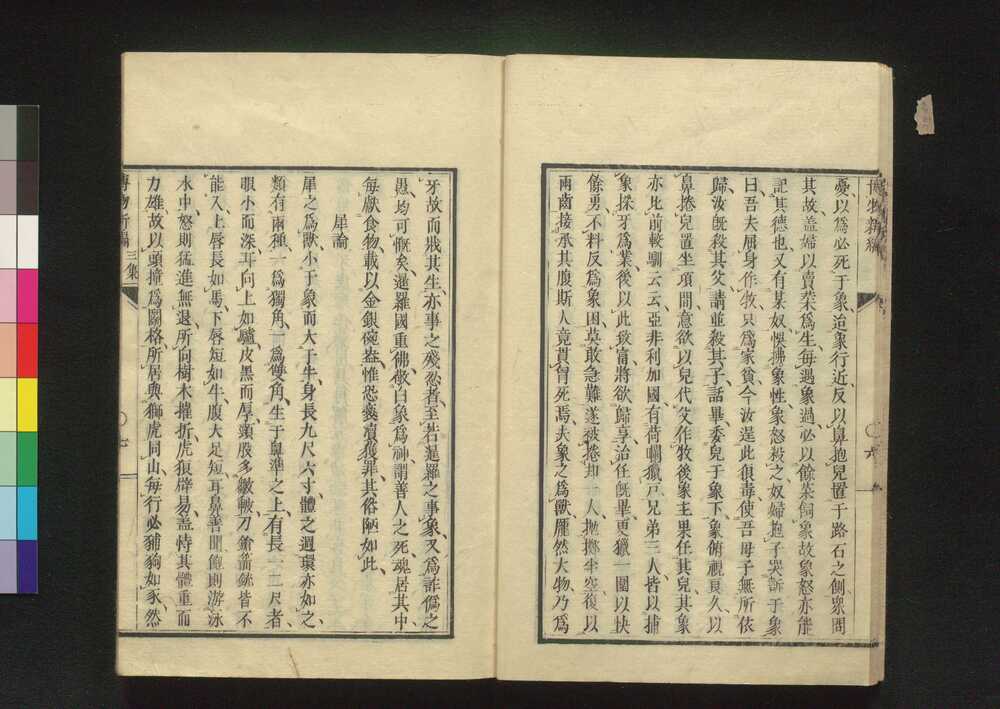 博物新編
憂以爲必死于象迨象行近反以鼻抱兒置于路石之側衆問
其故蓋婦以賣菜爲生每遇象過必以餘菜飼象故象怒亦能
記其德也又有某奴悞拂象性象怒殺之奴婦抱子哭訴于象
曰吾夫屏身作牧只爲家貧今汝逞此狼毒使吾母子無所依
歸汝旣殺其父請並殺其子話畢委兒于象下象俯視良久以
鼻捲兒置坐項間意欲以兒代父作牧後象主果任其兒其象
亦比前較馴云云亞非利加國有荷囒獵戸兄弟三人皆以捕
象採牙爲業後以此致富將欲歸享治任旣畢更獵一圍以快
餘勇不料反爲象困莫敢急難遂被捲却一人抛擲半空復以
兩齒接承其腹斯人竟貫胷死焉夫象之爲獸龐然大物乃爲
六
牙故而戕其生亦事之殘忍者至若暹羅之事象又爲詐僞之
愚均可慨矣暹羅國重佛敬白象爲神謂善人之死魂居其中
每獻食物載以金銀碗盎惟恐褻瀆獲罪其俗陋如此
犀論
犀之爲獸小于象而大于牛身長九尺六寸體之週環亦如之
類有兩種一爲獨角一爲雙角生于鼻準之上有長一二尺者
眼小而深耳向上如驢皮黑而厚頸股多皺皸刀鎗箭銃皆不
能入上唇長如馬下唇短如牛腹大足短耳鼻善聞飽則游泳
水中怒則猛進無退所向樹木摧折虎狼辟易蓋恃其體重而
力雄故以頭撞爲鬬格所居與獅虎同山每行必豬狗如豕然
博物新編 三集
七